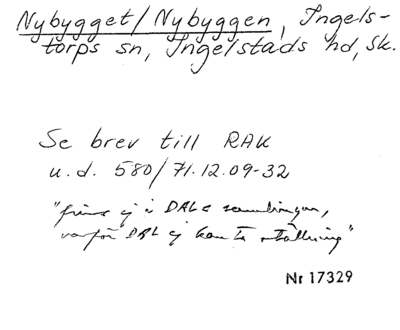 Nybygget/Nybyggen, Ingels-
torps sn, Ingelstads hd, Sk.
Se brev till RAK
u.d. 580/71.12.09-32
"finns ej i DAL:s samlingar,
varför DAL ej kan ta ställning"
Nr 17329